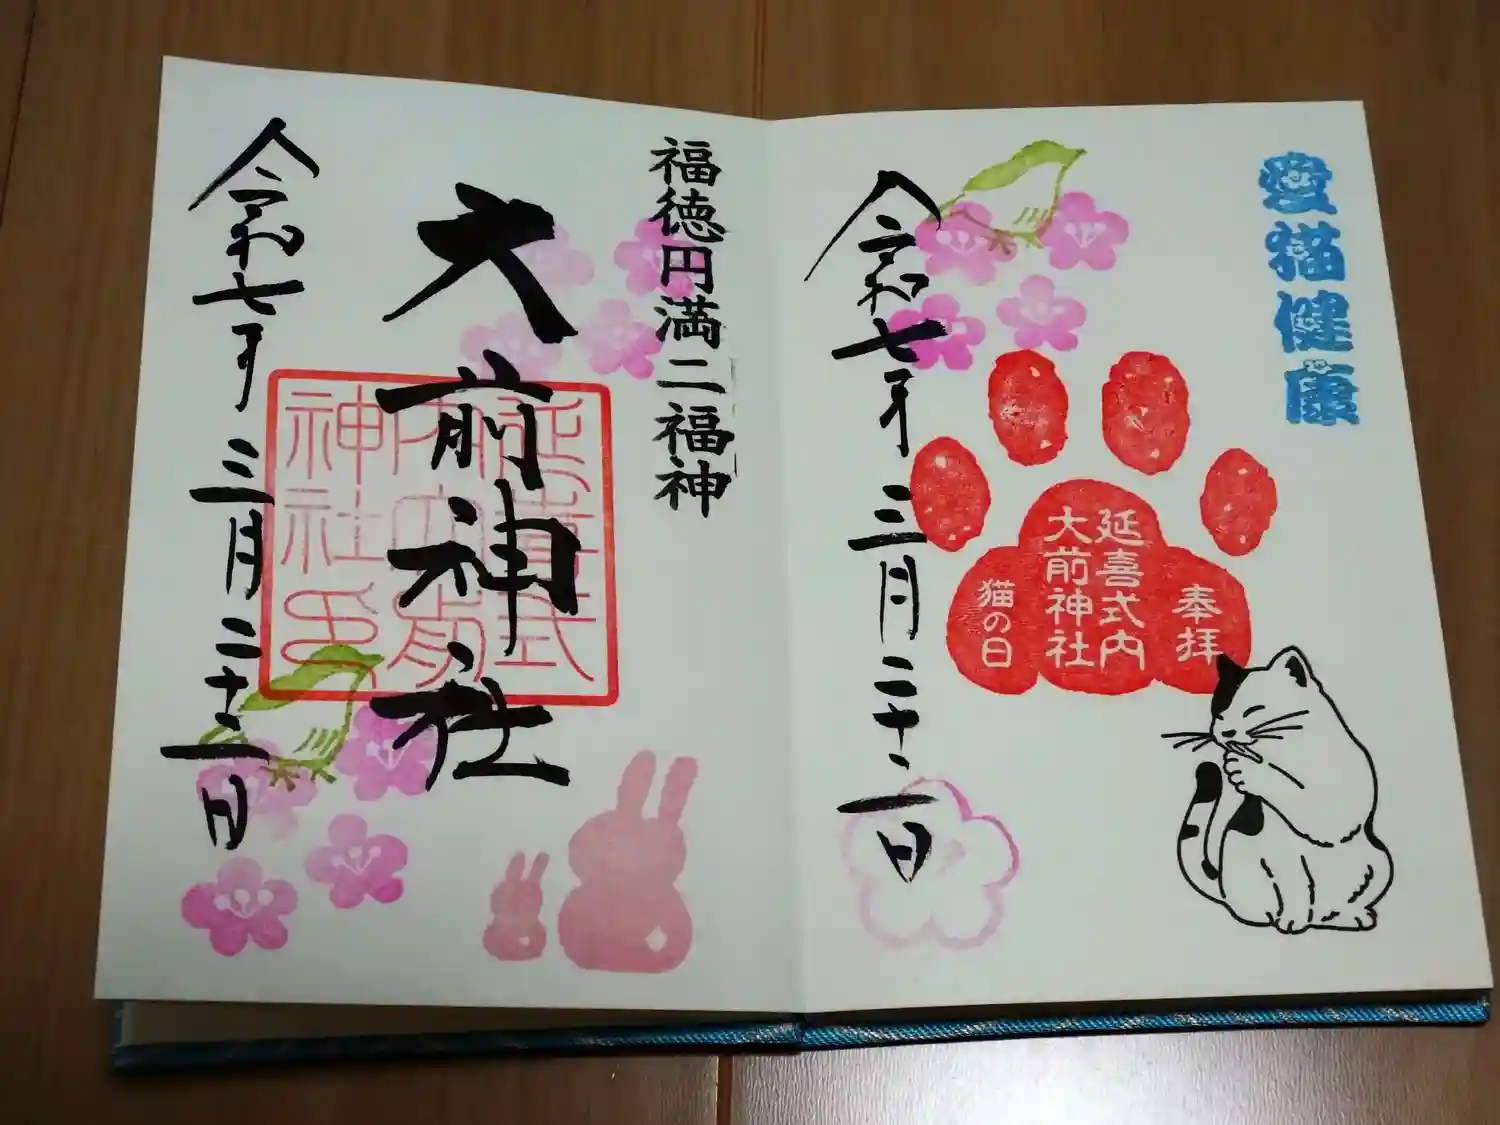 愛猫健康
奉拝
延喜式内
大前神社
猫の日
令和七年三月二十二日
福徳円満二福神
大前神社
延喜式
内大前
神社印
令和七年三月二十二日